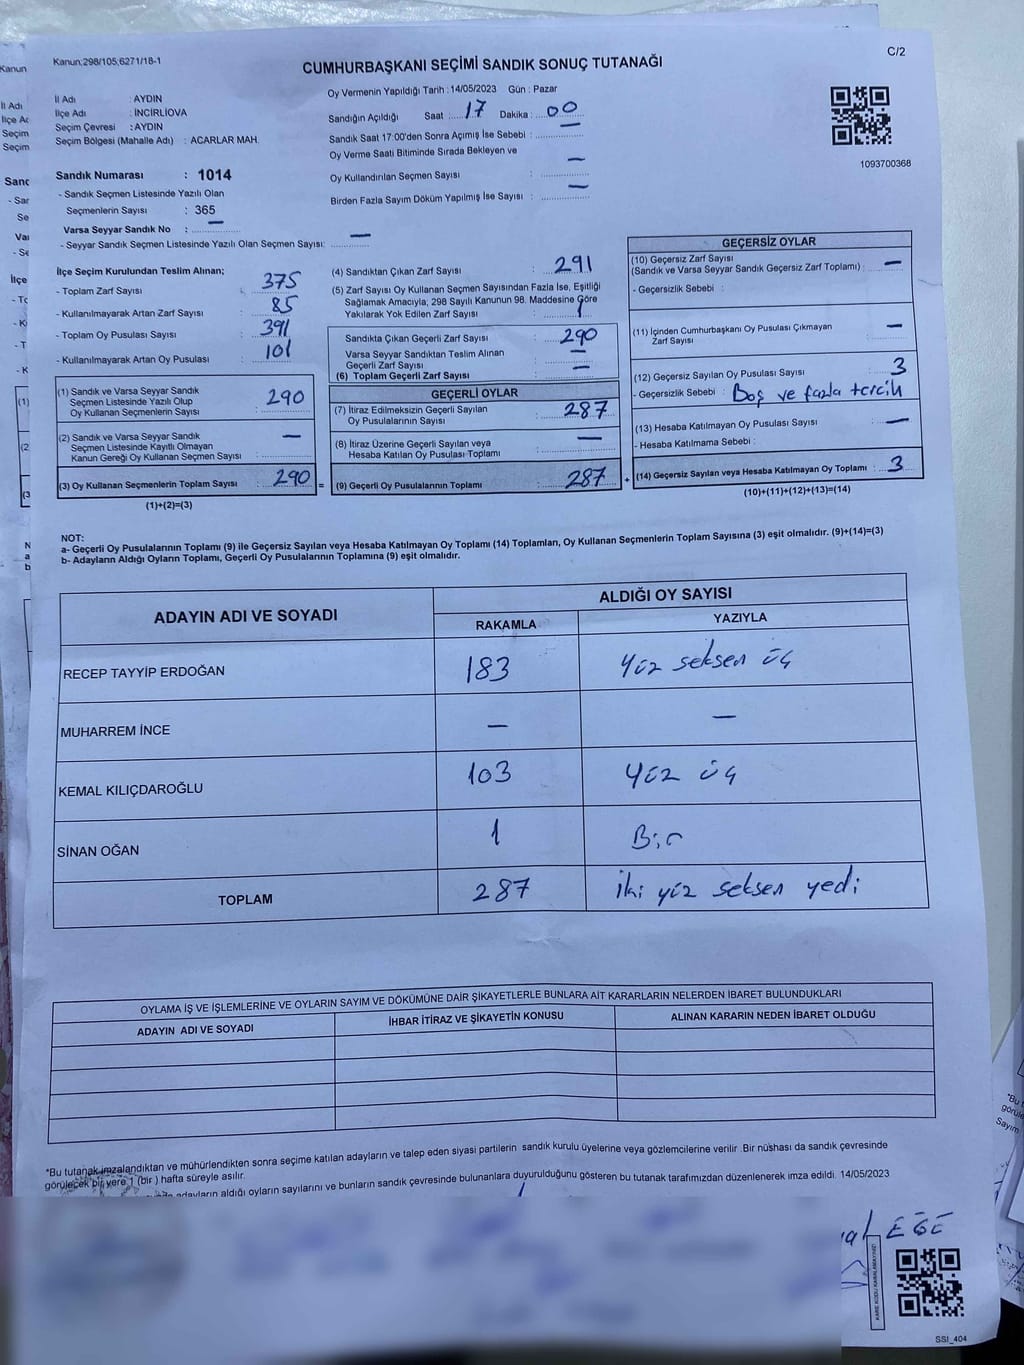 Kanun;298/105;6271/18-1
C/2
CUMHURBAŞKANI SEÇİMİ SANDIK SONUÇ TUTANAĞI
İl Adı : AYDIN
İlçe Adı : İNCİRLİOVA
Seçim Çevresi : AYDIN
Seçim Bölgesi (Mahalle Adı) : ACARLAR MAH.
Sandık Numarası : 1014
- Sandık Seçmen Listesinde Yazılı Olan
Seçmenlerin Sayısı : 365
Varsa Seyyar Sandık No : —
- Seyyar Sandık Seçmen Listesinde Yazılı Olan Seçmen Sayısı: —
Oy Vermenin Yapıldığı Tarih : 14/05/2023 Gün : Pazar
Sandığın Açıldığı Saat : 17 Dakika : 00
Sandık Saat 17:00'den Sonra Açımış İse Sebebi : —
Oy Verme Saati Bitiminde Sırada Bekleyen ve
Oy Kullandırılan Seçmen Sayısı : —
Birden Fazla Sayım Döküm Yapılmış İse Sayısı : —
1093700368
İlçe Seçim Kurulundan Teslim Alınan;
- Toplam Zarf Sayısı : 375
- Kullanılmayarak Artan Zarf Sayısı : 85
- Toplam Oy Pusulası Sayısı : 391
- Kullanılmayarak Artan Oy Pusulası : 101
(1) Sandık ve Varsa Seyyar Sandık
Seçmen Listesinde Yazılı Olup
Oy Kullanan Seçmenlerin Sayısı : 290
(2) Sandık ve Varsa Seyyar Sandık
Seçmen Listesinde Kayıtlı Olmayan
Kanun Gereği Oy Kullanan Seçmen Sayısı : —
(3) Oy Kullanan Seçmenlerin Toplam Sayısı : 290 =
(1)+(2)=(3)
(4) Sandıktan Çıkan Zarf Sayısı : 291
(5) Zarf Sayısı Oy Kullanan Seçmen Sayısından Fazla İse, Eşitliği
Sağlamak Amacıyla; 298 Sayılı Kanunun 98. Maddesine Göre
Yakılarak Yok Edilen Zarf Sayısı : 1
Sandıkta Çıkan Geçerli Zarf Sayısı : 290
Varsa Seyyar Sandıktan Teslim Alınan
Geçerli Zarf Sayısı : —
(6) Toplam Geçerli Zarf Sayısı : —
GEÇERLİ OYLAR
(7) İtiraz Edilmeksizin Geçerli Sayılan
Oy Pusulasının Sayısı : 287
(8) İtiraz Üzerine Geçerli Sayılan veya
Hesaba Katılan Oy Pusulası Toplamı : —
(9) Geçerli Oy Pusulalarının Toplamı : 287 +
GEÇERSİZ OYLAR
(10) Geçersiz Zarf Sayısı
(Sandık ve Varsa Seyyar Sandık Geçersiz Zarf Toplamı) : —
- Geçersizlik Sebebi :
(11) İçinden Cumhurbaşkanı Oy Pusulası Çıkmayan
Zarf Sayısı : —
(12) Geçersiz Sayılan Oy Pusulası Sayısı : 3
- Geçersizlik Sebebi : Boş ve fazla tercih
(13) Hesaba Katılmayan Oy Pusulası Sayısı : —
- Hesaba Katılmama Sebebi :
(14) Geçersiz Sayılan veya Hesaba Katılmayan Oy Toplamı : 3
(10)+(11)+(12)+(13)=(14)
NOT:
a- Geçerli Oy Pusulalarının Toplamı (9) ile Geçersiz Sayılan veya Hesaba Katılmayan Oy Toplamı (14) Toplamları, Oy Kullanan Seçmenlerin Toplam Sayısına (3) eşit olmalıdır. (9)+(14)=(3)
b- Adayların Aldığı Oyların Toplamı, Geçerli Oy Pusulalarının Toplamına (9) eşit olmalıdır.
ADAYIN ADI VE SOYADI ALDIĞI OY SAYISI
RAKAMLA YAZIYLA
RECEP TAYYİP ERDOĞAN 183 Yüz seksen üç
MUHARREM İNCE — —
KEMAL KILIÇDAROĞLU 103 Yüz üç
SİNAN OĞAN 1 Bir
TOPLAM 287 İki yüz seksen yedi
OYLAMA İŞ VE İŞLEMLERİNE VE OYLARIN SAYIM VE DÖKÜMÜNE DAİR ŞİKAYETLERLE BUNLARA AİT KARARLARIN NELERDEN İBARET BULUNDUKLARI
ADAYIN ADI VE SOYADI İHBAR İTİRAZ VE ŞİKAYETİN KONUSU ALINAN KARARIN NEDEN İBARET OLDUĞU
*Bu tutanak imzalandıktan ve mühürlendikten sonra seçime katılan adayların ve talep eden siyasi partilerin sandık kurulu üyelerine veya gözlemcilerine verilir. Bir nüshası da sandık çevresinde
görülecek bir yere 1 (bir ) hafta süreyle asılır.
adayların aldığı oyların sayılarını ve bunların sandık çevresinde bulunanlara duyurulduğunu gösteren bu tutanak tarafımızdan düzenlenerek imza edildi. 14/05/2023
EGE
KARE KODU KARALAMAYINIZ!
SSI_404